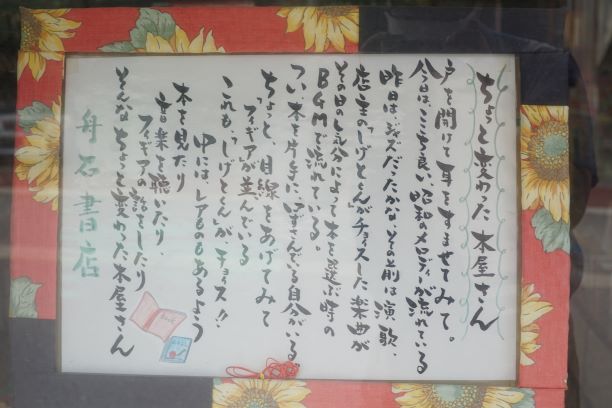 ちょっと変わった本屋さん
戸を開けて耳をすませてみて。
今日は、ここち良い昭和のメロディが流れている
昨日は、ジャズだったかな、その前は演歌、
店主の「しげとくん」がチョイスした楽曲が
その日の気分によって本を選ぶ時の
BGMで流れている。
つい、本を片手に口ずさんでいる自分がいる
ちょっと、目線をあげてみて
フィギアが並んでいる
これも、「しげとくん」が、チョイス!!
中には、レアものもあるよう
本を見たり
音楽を聴いたり、
フィギアの話をしたり
そんなちょっと変わった本屋さん
舟石書店